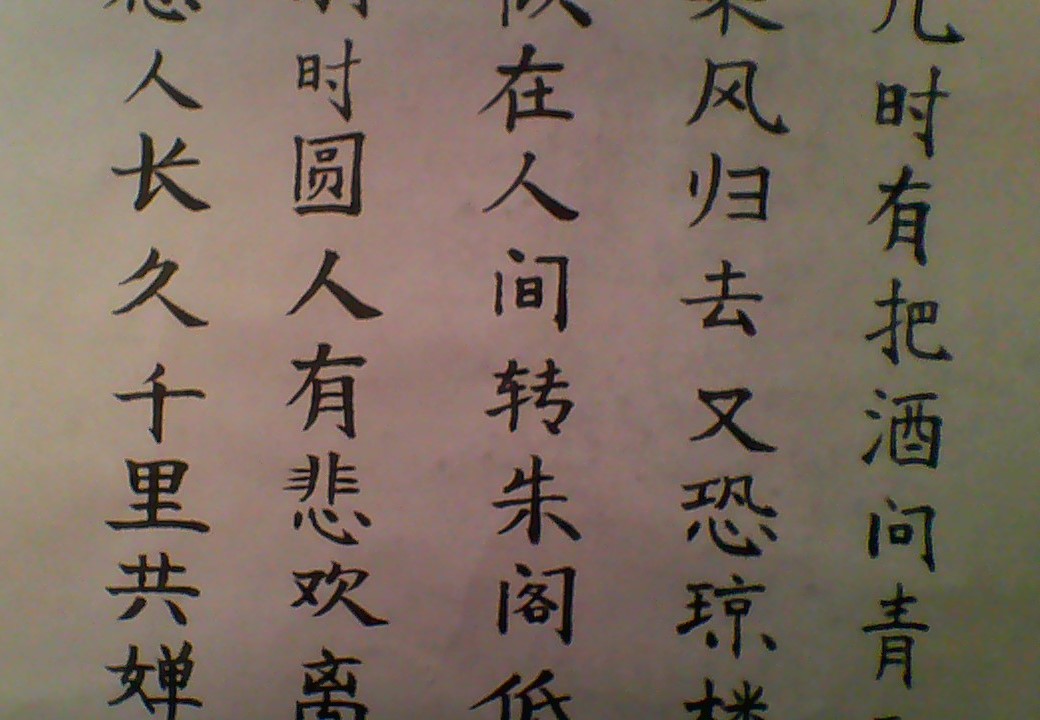 几时有把酒问青
乘风归去又恐琼楼
似在人间转朱阁低
时圆人有悲欢离
人长久千里共婵